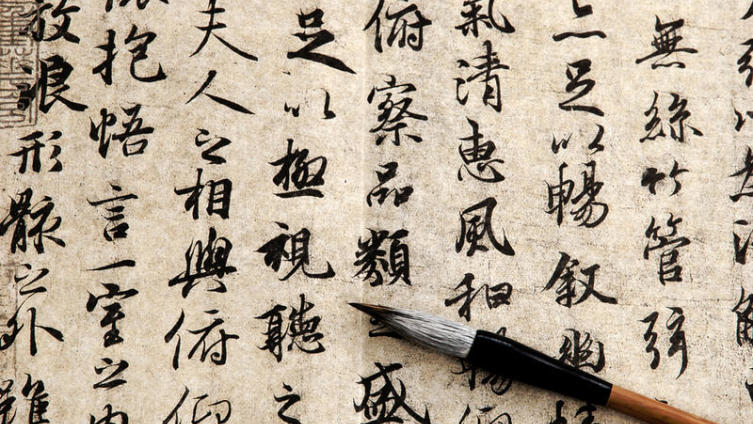 無絲竹管弦
亦足以暢敘幽情
氣清惠風和暢仰
俯察品類之盛
足以極視聽之
夫人之相與俯仰
懷抱悟言一室之內
放浪形骸之外雖